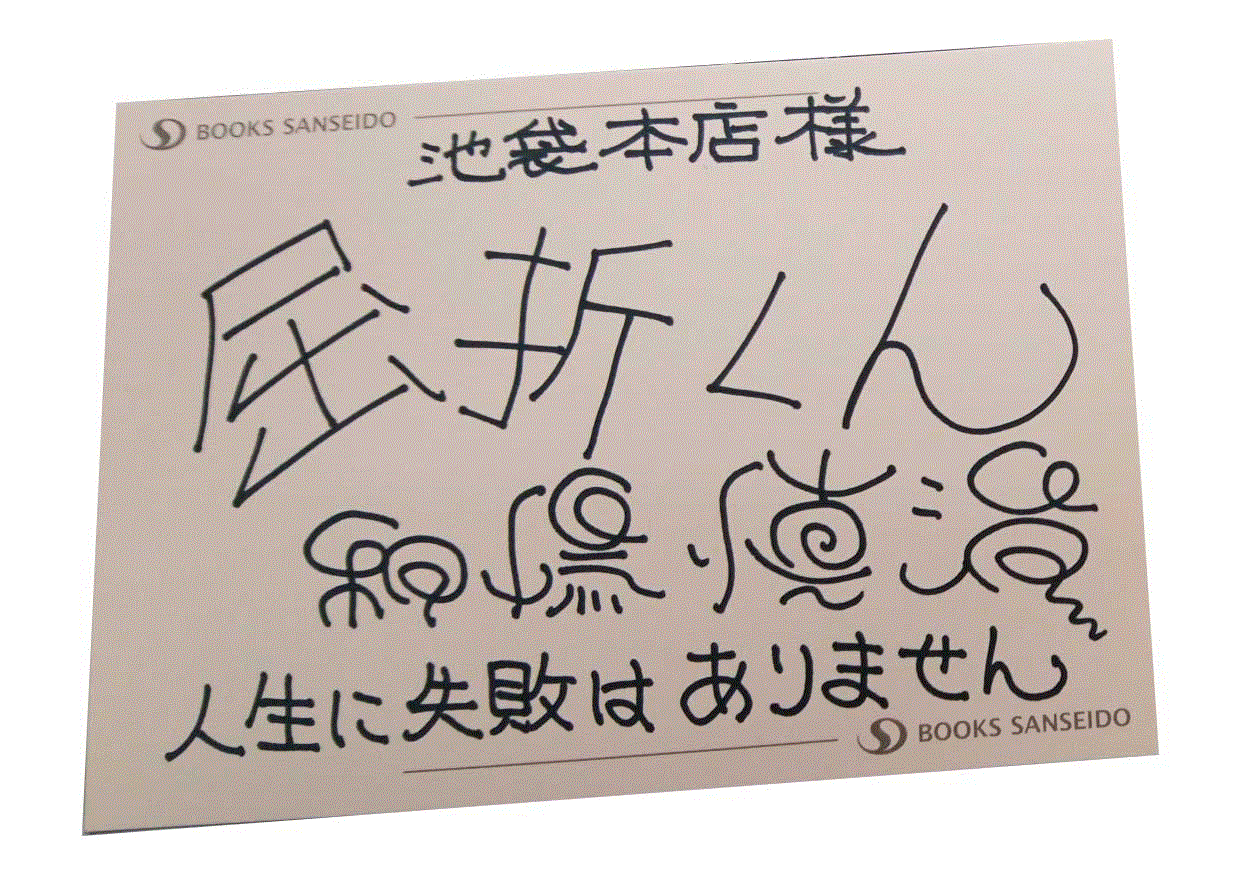 BOOKS SANSEIDO
池袋本店様
屈折くん
和嶋慎治
人生に失敗はありません
BOOKS SANSEIDO